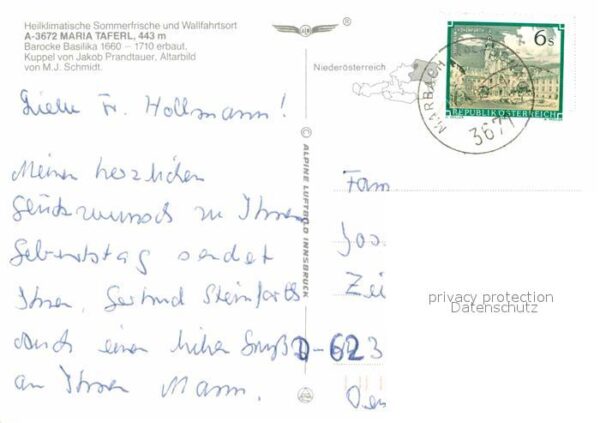 Heilklimatische Sommerfrische und Wallfahrtsort
A-3672 MARIA TAFERL, 443 m
Barocke Basilika 1660 – 1710 erbaut.
Kuppel von Jakob Prandtauer, Altarbild
von M.J. Schmidt.
Niederösterreich
6 S
REPUBLIK ÖSTERREICH
MARBACH
3671
Liebe Fr. Hollmann!
Meinen herzlichen
Glückwunsch zu Ihrem
Geburtstag sendet
Ihnen, Gertrud
Auch einen Gruß
an Ihren Mann.
© ALPINE LUFTBILD INNSBRUCK
Fam
Jos
Zei
D-623
privacy protection
Datenschutz